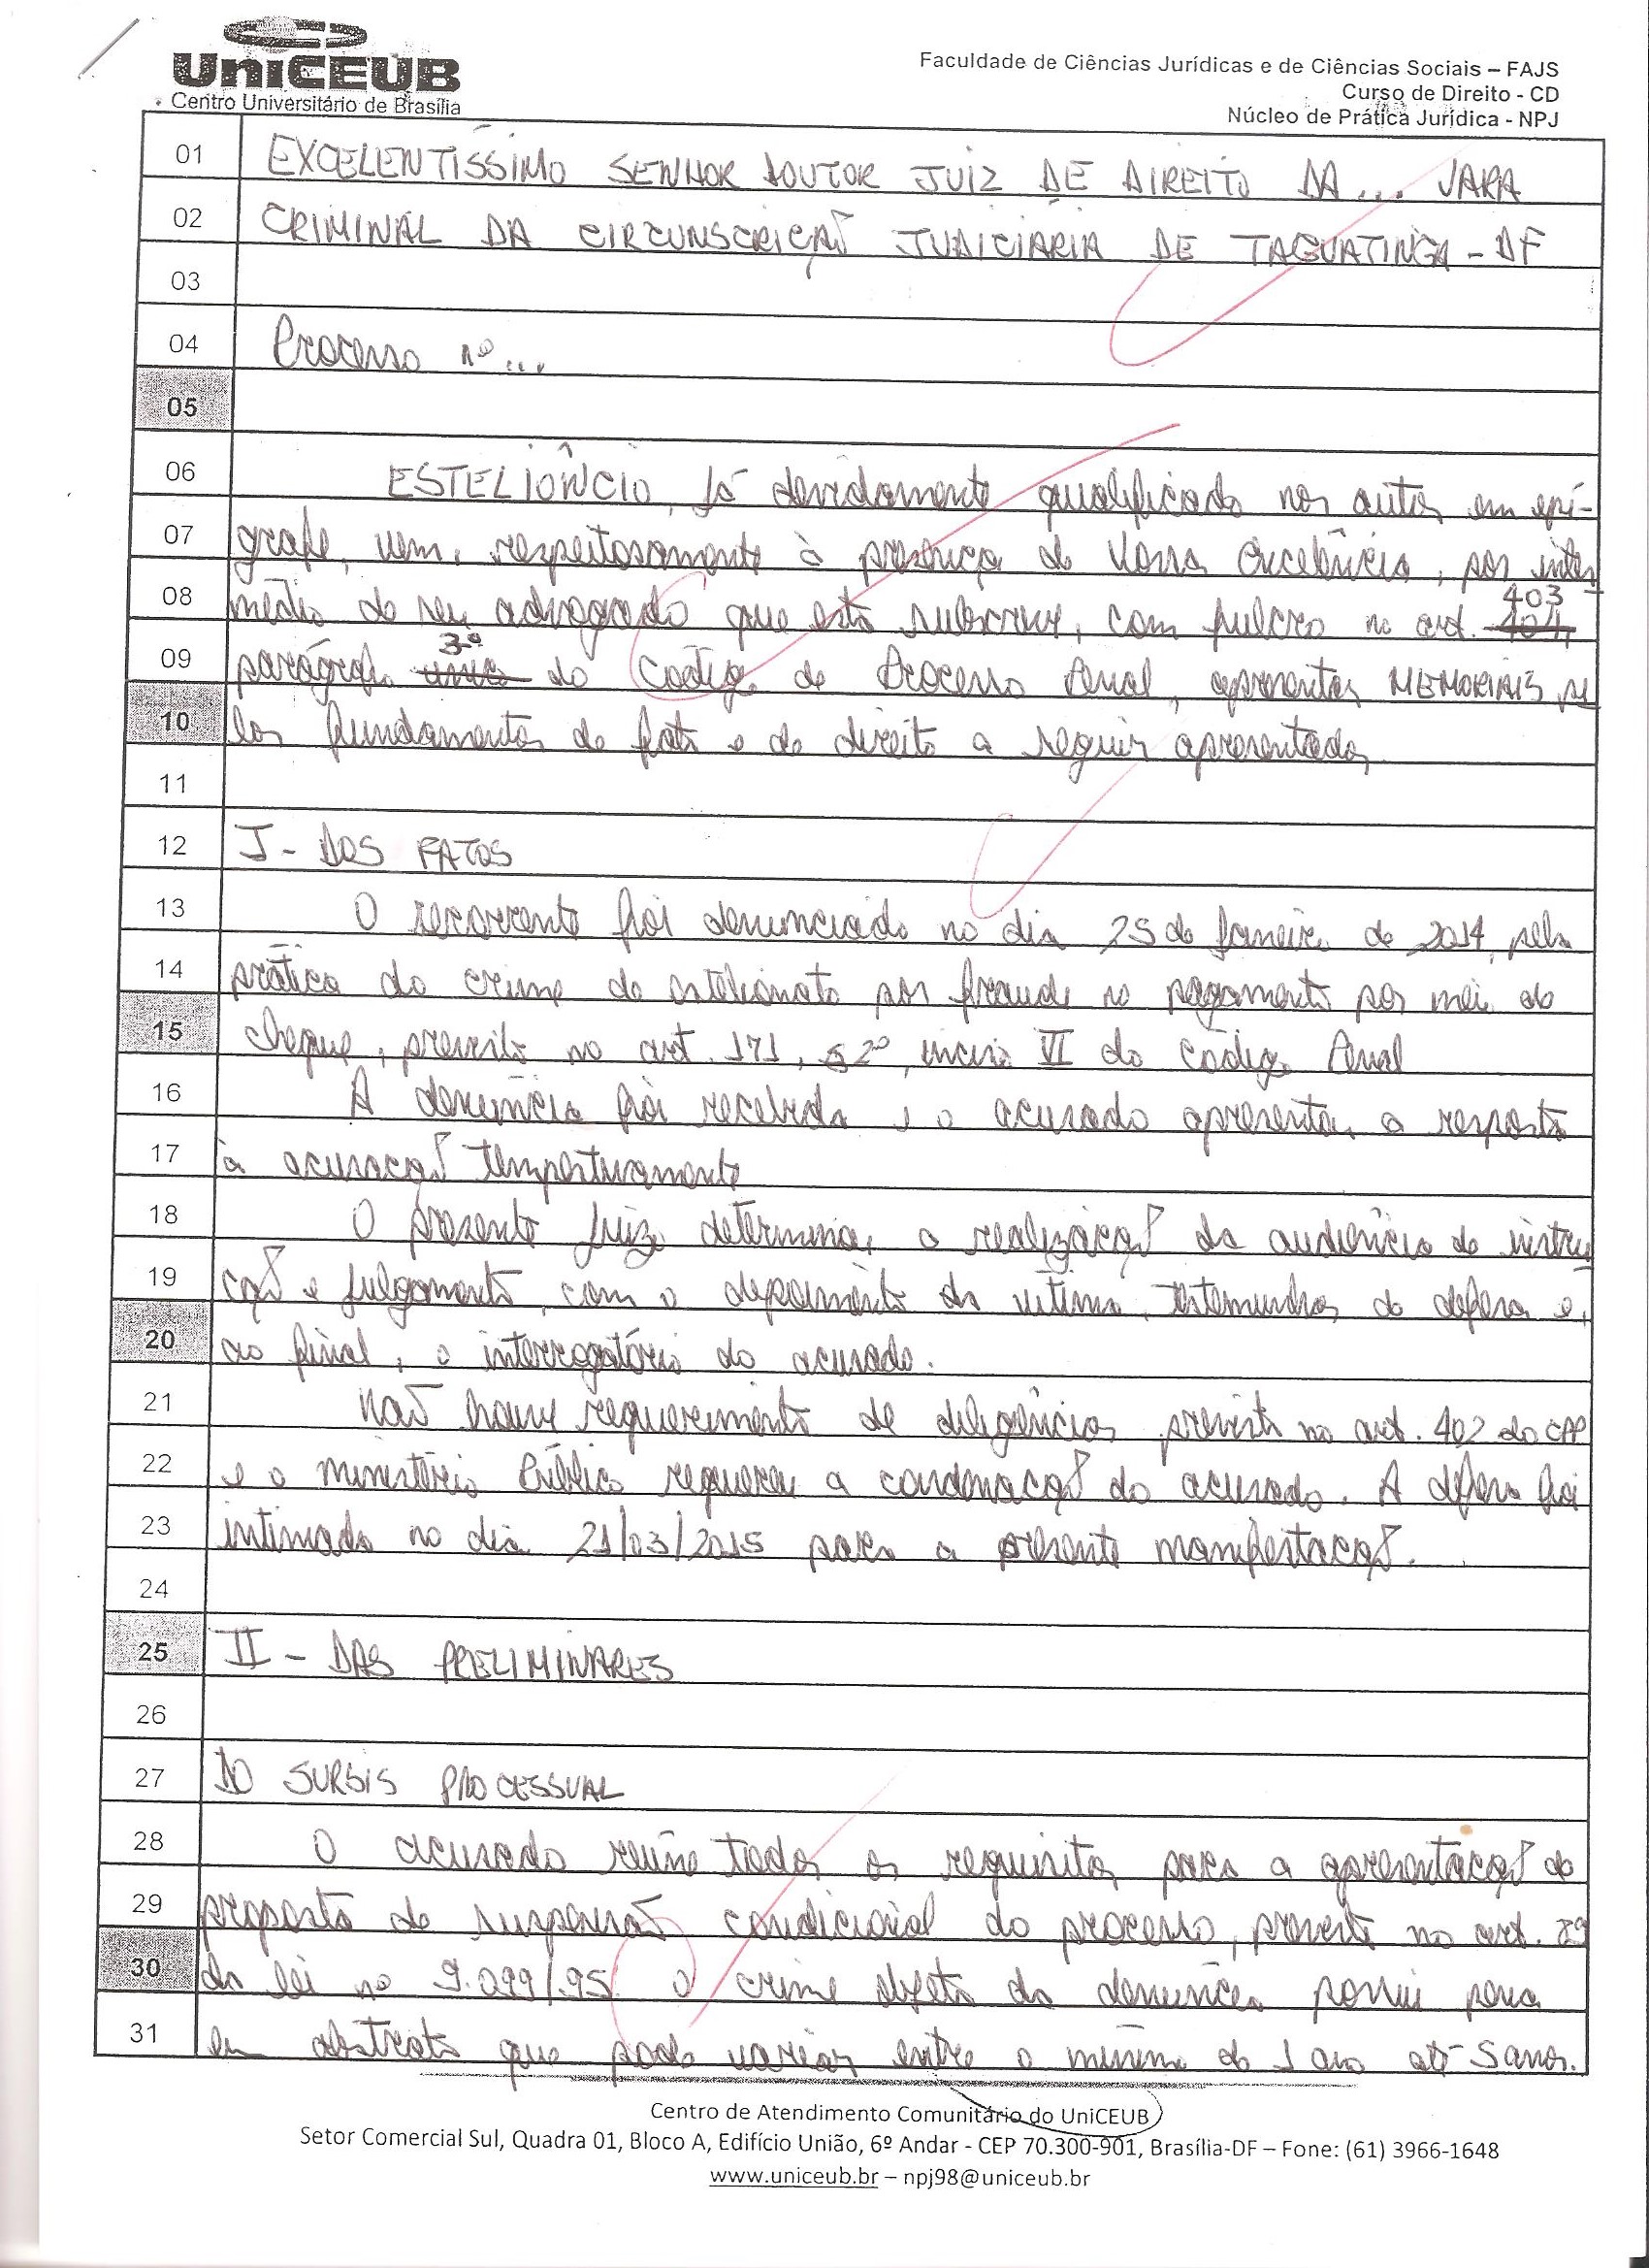 UniCEUB
Centro Universitário de Brasília
Faculdade de Ciências Jurídicas e de Ciências Sociais – FAJS
Curso de Direito - CD
Núcleo de Prática Jurídica - NPJ
01 EXCELENTÍSSIMO SENHOR DOUTOR JUIZ DE DIREITO DA ... VARA
02 CRIMINAL DA CIRCUNSCRIÇÃO JUDICIÁRIA DE TAGUATINGA - DF
03
04 Processo nº ...
05
06 ESTELIÔNCIO, já devidamente qualificado nos autos em epí-
07 grafe, vem, respeitosamente à presença de Vossa Excelência, por inter
08 médio de seu advogado que esta subscreve, com fulcro no art. 404 403
09 parágrafo único 3º do Código de Processo Penal, apresentar MEMORIAIS pe
10 los fundamentos de fato e de direito a seguir apresentados
11
12 I - DOS FATOS
13 O recorrente foi denunciado no dia 25 de Janeiro de 2014, pela
14 prática do crime de estelionato por fraude no pagamento por meio de
15 cheque, previsto no art. 171, § 2º, inciso VI do Código Penal
16 A denúncia foi recebida e o acusado apresentou a resposta
17 à acusação tempestivamente
18 O presente juízo determinou a realização da audiência de instru
19 ção e julgamento, com o depoimento da vítima, testemunhas de defesa e,
20 ao final, o interrogatório do acusado.
21 Não houve requerimento de diligências previsto no art. 402 do CPP
22 e o Ministério Público requereu a condenação do acusado. A defesa foi
23 intimada no dia 21/03/2015 para a presente manifestação.
24
25 II - DAS PRELIMINARES
26
27 DO SURSIS PROCESSUAL
28 O acusado reúne todos os requisitos para a apresentação da
29 proposta de suspensão condicional do processo, prevista no art. 89
30 da lei nº 9.099/95. O crime objeto da denúncia possui pena
31 em abstrato que pode variar entre o mínimo de 1 ano até 5 anos.
Centro de Atendimento Comunitário do UniCEUB
Setor Comercial Sul, Quadra 01, Bloco A, Edifício União, 6º Andar - CEP 70.300-901, Brasília-DF – Fone: (61) 3966-1648
www.uniceub.br – npj98@uniceub.br